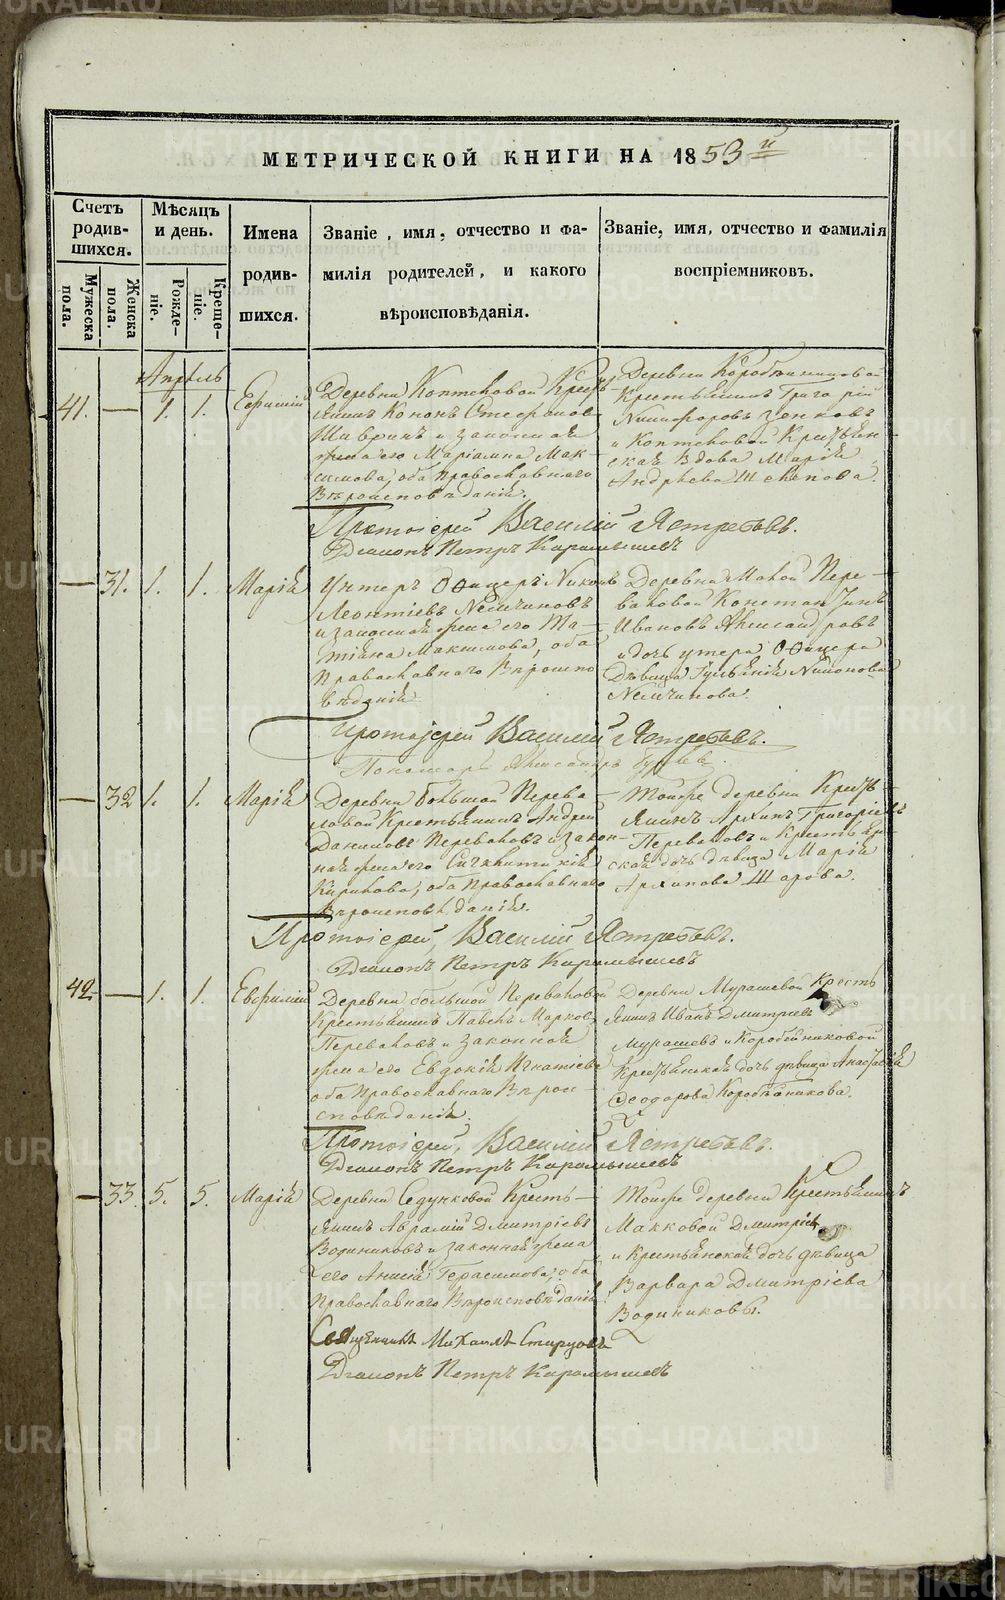 МЕТРИЧЕСКОЙ КНИГИ НА 1853й
Счетъ родив-шихся.
Мужеска пола.
Женска пола.
Мѣсяцъ и день.
Рожде-ніе.
Креще-ніе.
Имена родив-шихся.
Званіе, имя, отчество и фа-
милія родителей, и какого
вѣроисповѣданія.
Званіе, имя, отчество и фамилія
воспріемниковъ.
Апрѣль
41. — 1. 1.
Евфимій
Деревни Коптяковой Кресть-
янинъ Кононъ Стефановъ
и законная
жена его Маріамна Мак-
симова, оба православнаго
Вѣроисповѣданія.
Деревни Коробейниковой
Крестьянинъ Григорій
Никифоровъ Зенковъ
и Коптяковой Крестьян-
ская Вдова Марія
Андреева Щекапова.
Протоіерей Василій Ястребовъ.
Діаконъ Петръ Карамышевъ
— 31. 1. 1.
Марія
Унтеръ Офицеръ Никонъ
Леонтіевъ Немчиновъ
и законная жена его Та-
тіана Максимова, оба
Православнаго Вѣроиспо
вѣданія
Деревни Малой Пере-
ваковой Константинъ
Ивановъ Александровъ
и дочь унтера Офицера
Дѣвица Никонова
Немчинова.
Протоіерей Василій Ястребовъ.
Пономарь Александръ
— 32 1. 1.
Марія
Деревни большой Перева
ловой Крестьянинъ Андрей
Даниловъ Переваловъ и закон-
ная жена его Синклитикія
Кирикова, оба Православнаго
Вѣроисповѣданія.
Тойже деревни Кресть-
янинъ Архипъ Григоріевъ
Переваловъ и Крестьян-
ская дочь дѣвица Марія
Архипова Шарова.
Протоіерей, Василій Ястребовъ.
Діаконъ Петръ Карамышевъ
42 — 1. 1.
Евфимій
Деревни большой Переваловой
Крестьянинъ Павелъ Марков.
Переваловъ и законная
жена его Евдокія Игнатіева
оба Православнаго Вѣрои-
сповѣданія.
Деревни Мурашевой Кресть
янинъ Иванъ Дмитріевъ
Мурашевъ и Коробейниковой
Крестьянская дочь дѣвица Анастасія
Феодорова Коробейникова.
Протоіерей, Василій Ястребовъ.
Діаконъ Петръ Карамышевъ
— 33. 5. 5.
Марія
Деревни Седунковой Кресть-
янинъ Аврамій Дмитріевъ
Водиниковъ и законная жена
его Анисія Герасимова, оба
Православнаго Вѣроисповѣданія
Тойже деревни Крестьянинъ
Дмитріевъ
и Крестьянская дочь дѣвица
Варвара Дмитріева
Водиниковы.
Священникъ Михаилъ
Діаконъ Петръ Карамышевъ
METRIKI.GASO-URAL.RU